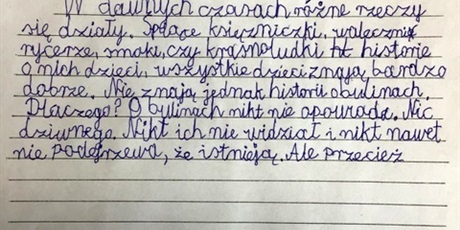 W dawnych czasach różne rzeczy
się działy. Śpiące księżniczki, waleczni
rycerze, smoki, czy krasnoludki historie
o nich dzieci, wszystkie dzieci znają bardzo
dobrze. Nie znają jednak historii o bylinach.
Dlaczego? O bylinach nikt nie opowiada. Nic
dziwnego. Nikt ich nie widział i nikt nawet
nie podejrzewa, że istnieją. Ale przecież